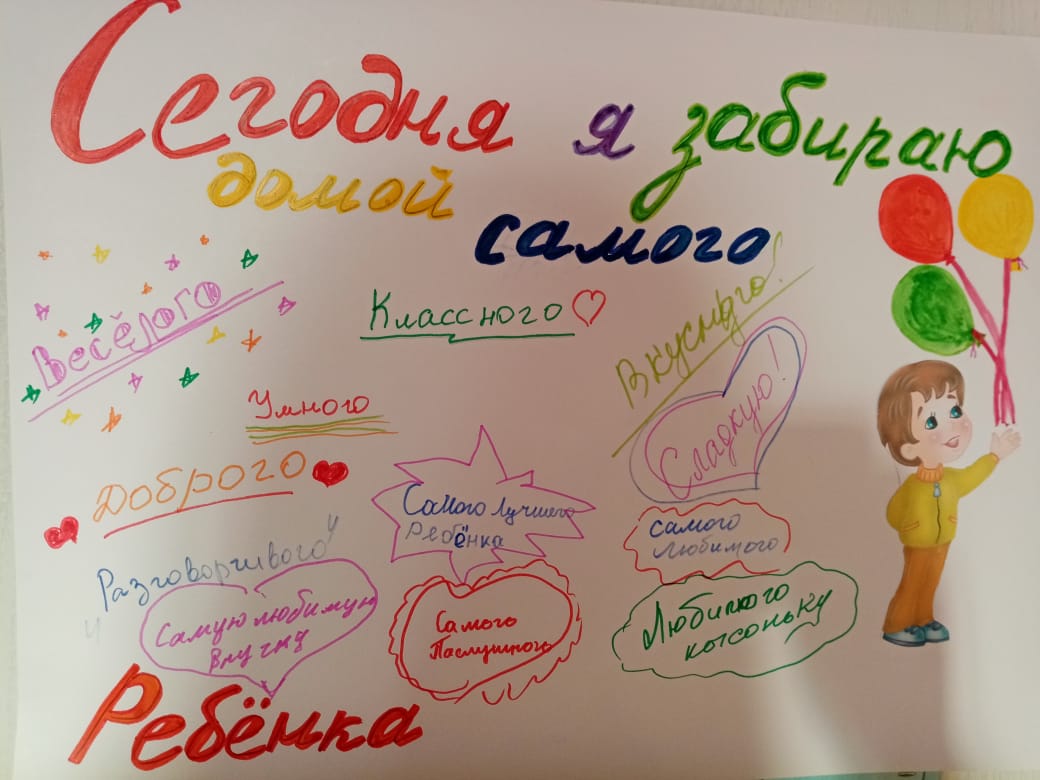 Сегодня я забираю
домой
самого
Весёлого
Классного
Вкусного!
Умного
Сладкую!
Доброго
Самого Лучшего
Ребёнка
самого
Любимого
Разговорчивого
Самую любимую
Внучку
Самого
Паслушного
Любимого
кысоньку
Ребёнка